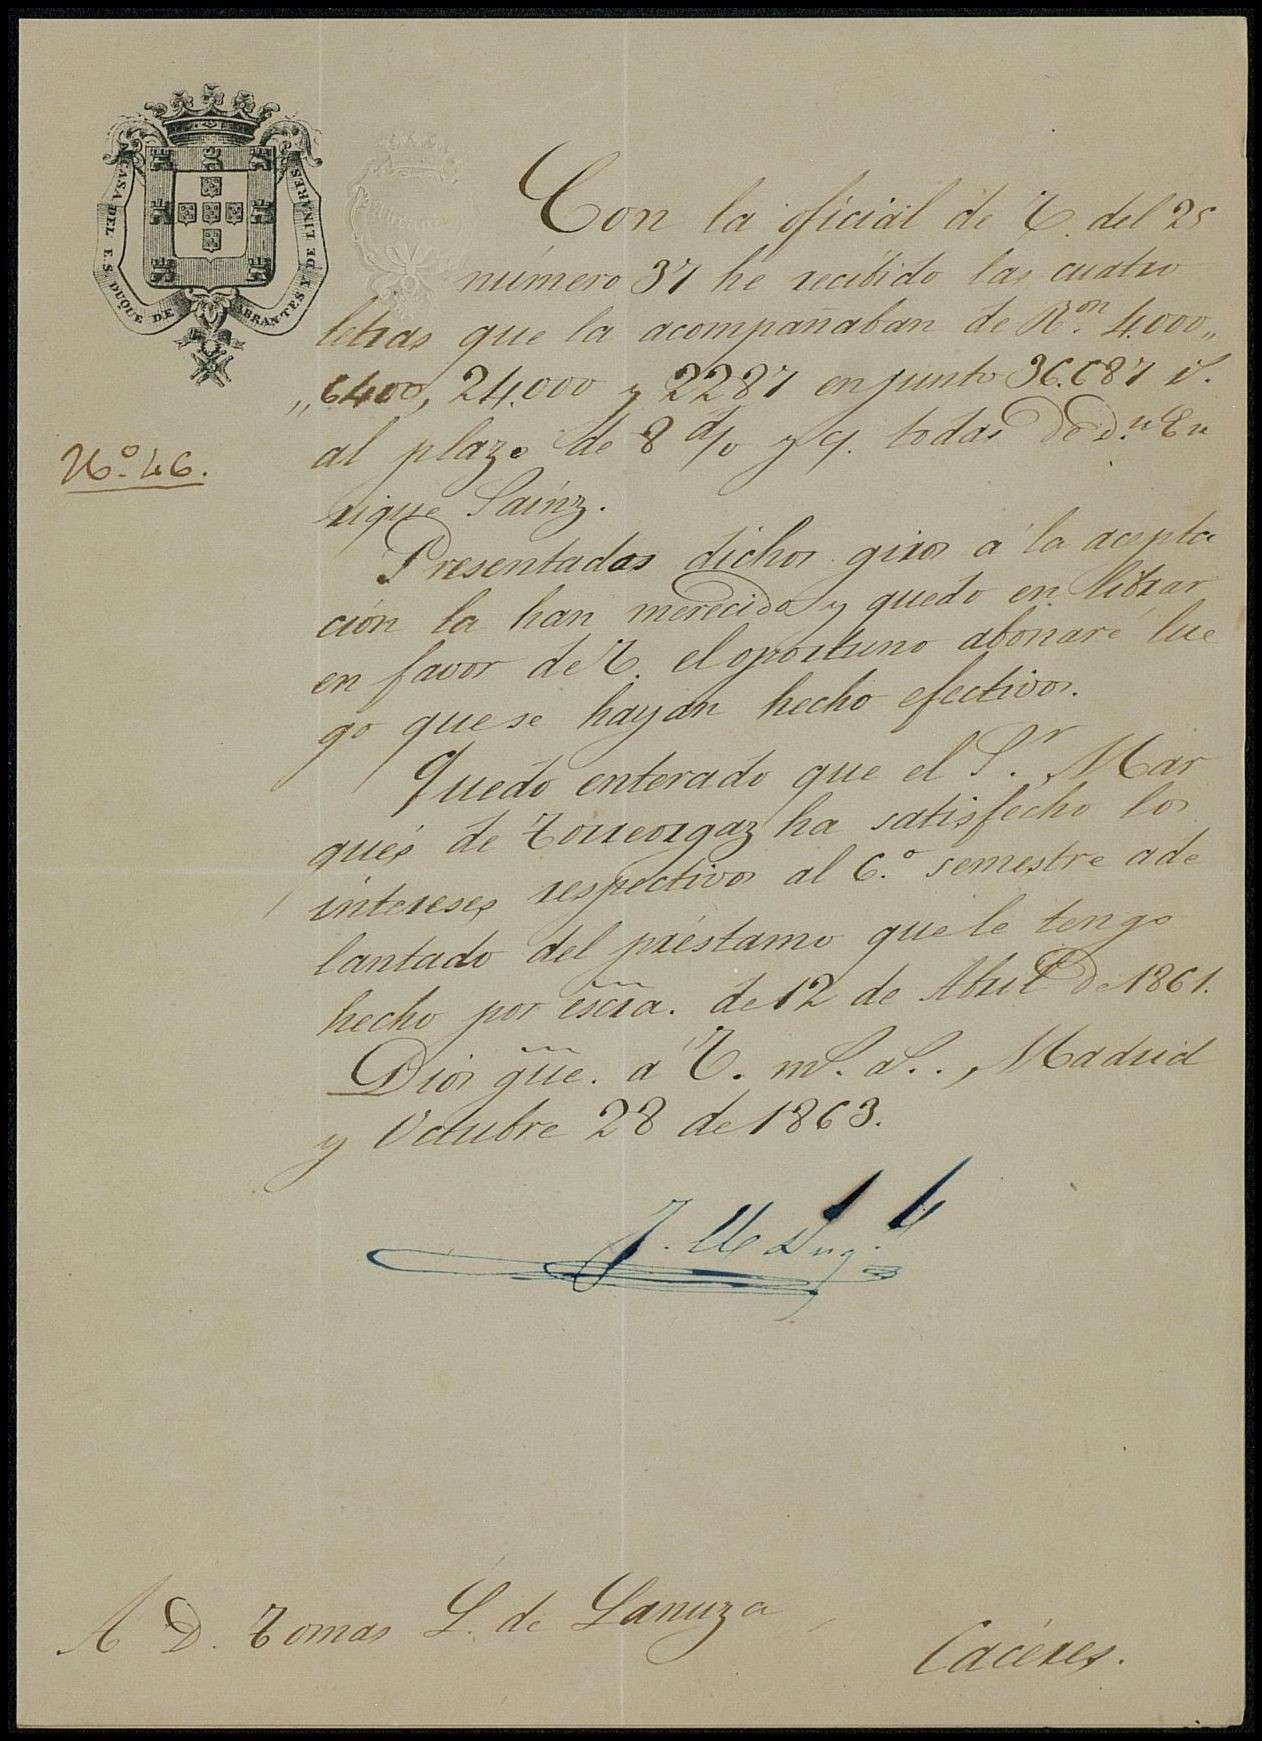 CASA DEL E. S. DUQUE DE ABRANTES Y DE LINARES
Con la oficial de V. del 25
número 37 he recibido las cuatro
letras que la acompañaban de R.on 4.000,,
,,6400, 24.000 y 2287 en junto 36.687 r.
al plazo de 8 d/v y c/. todas de D.n En
rique Sainz.
Nº 46.
Presentadas dichos giros á la acepta
ción la han merecido y quedo en librar
en favor de V. el oportuno abonaré lue
go que se hayan hecho efectivos.
Quedo enterado que el S.r Mar
qués de Torreorgaz ha satisfecho los
intereses respectivos al 6.º semestre ade
lantado del préstamo que le tengo
hecho por escra. de 12 de Abril de 1861.
Dios gue. á V. m.s a.s, Madrid
y Octubre 28 de 1863.
A D. Tomas L. de Lanuza
Cáceres.